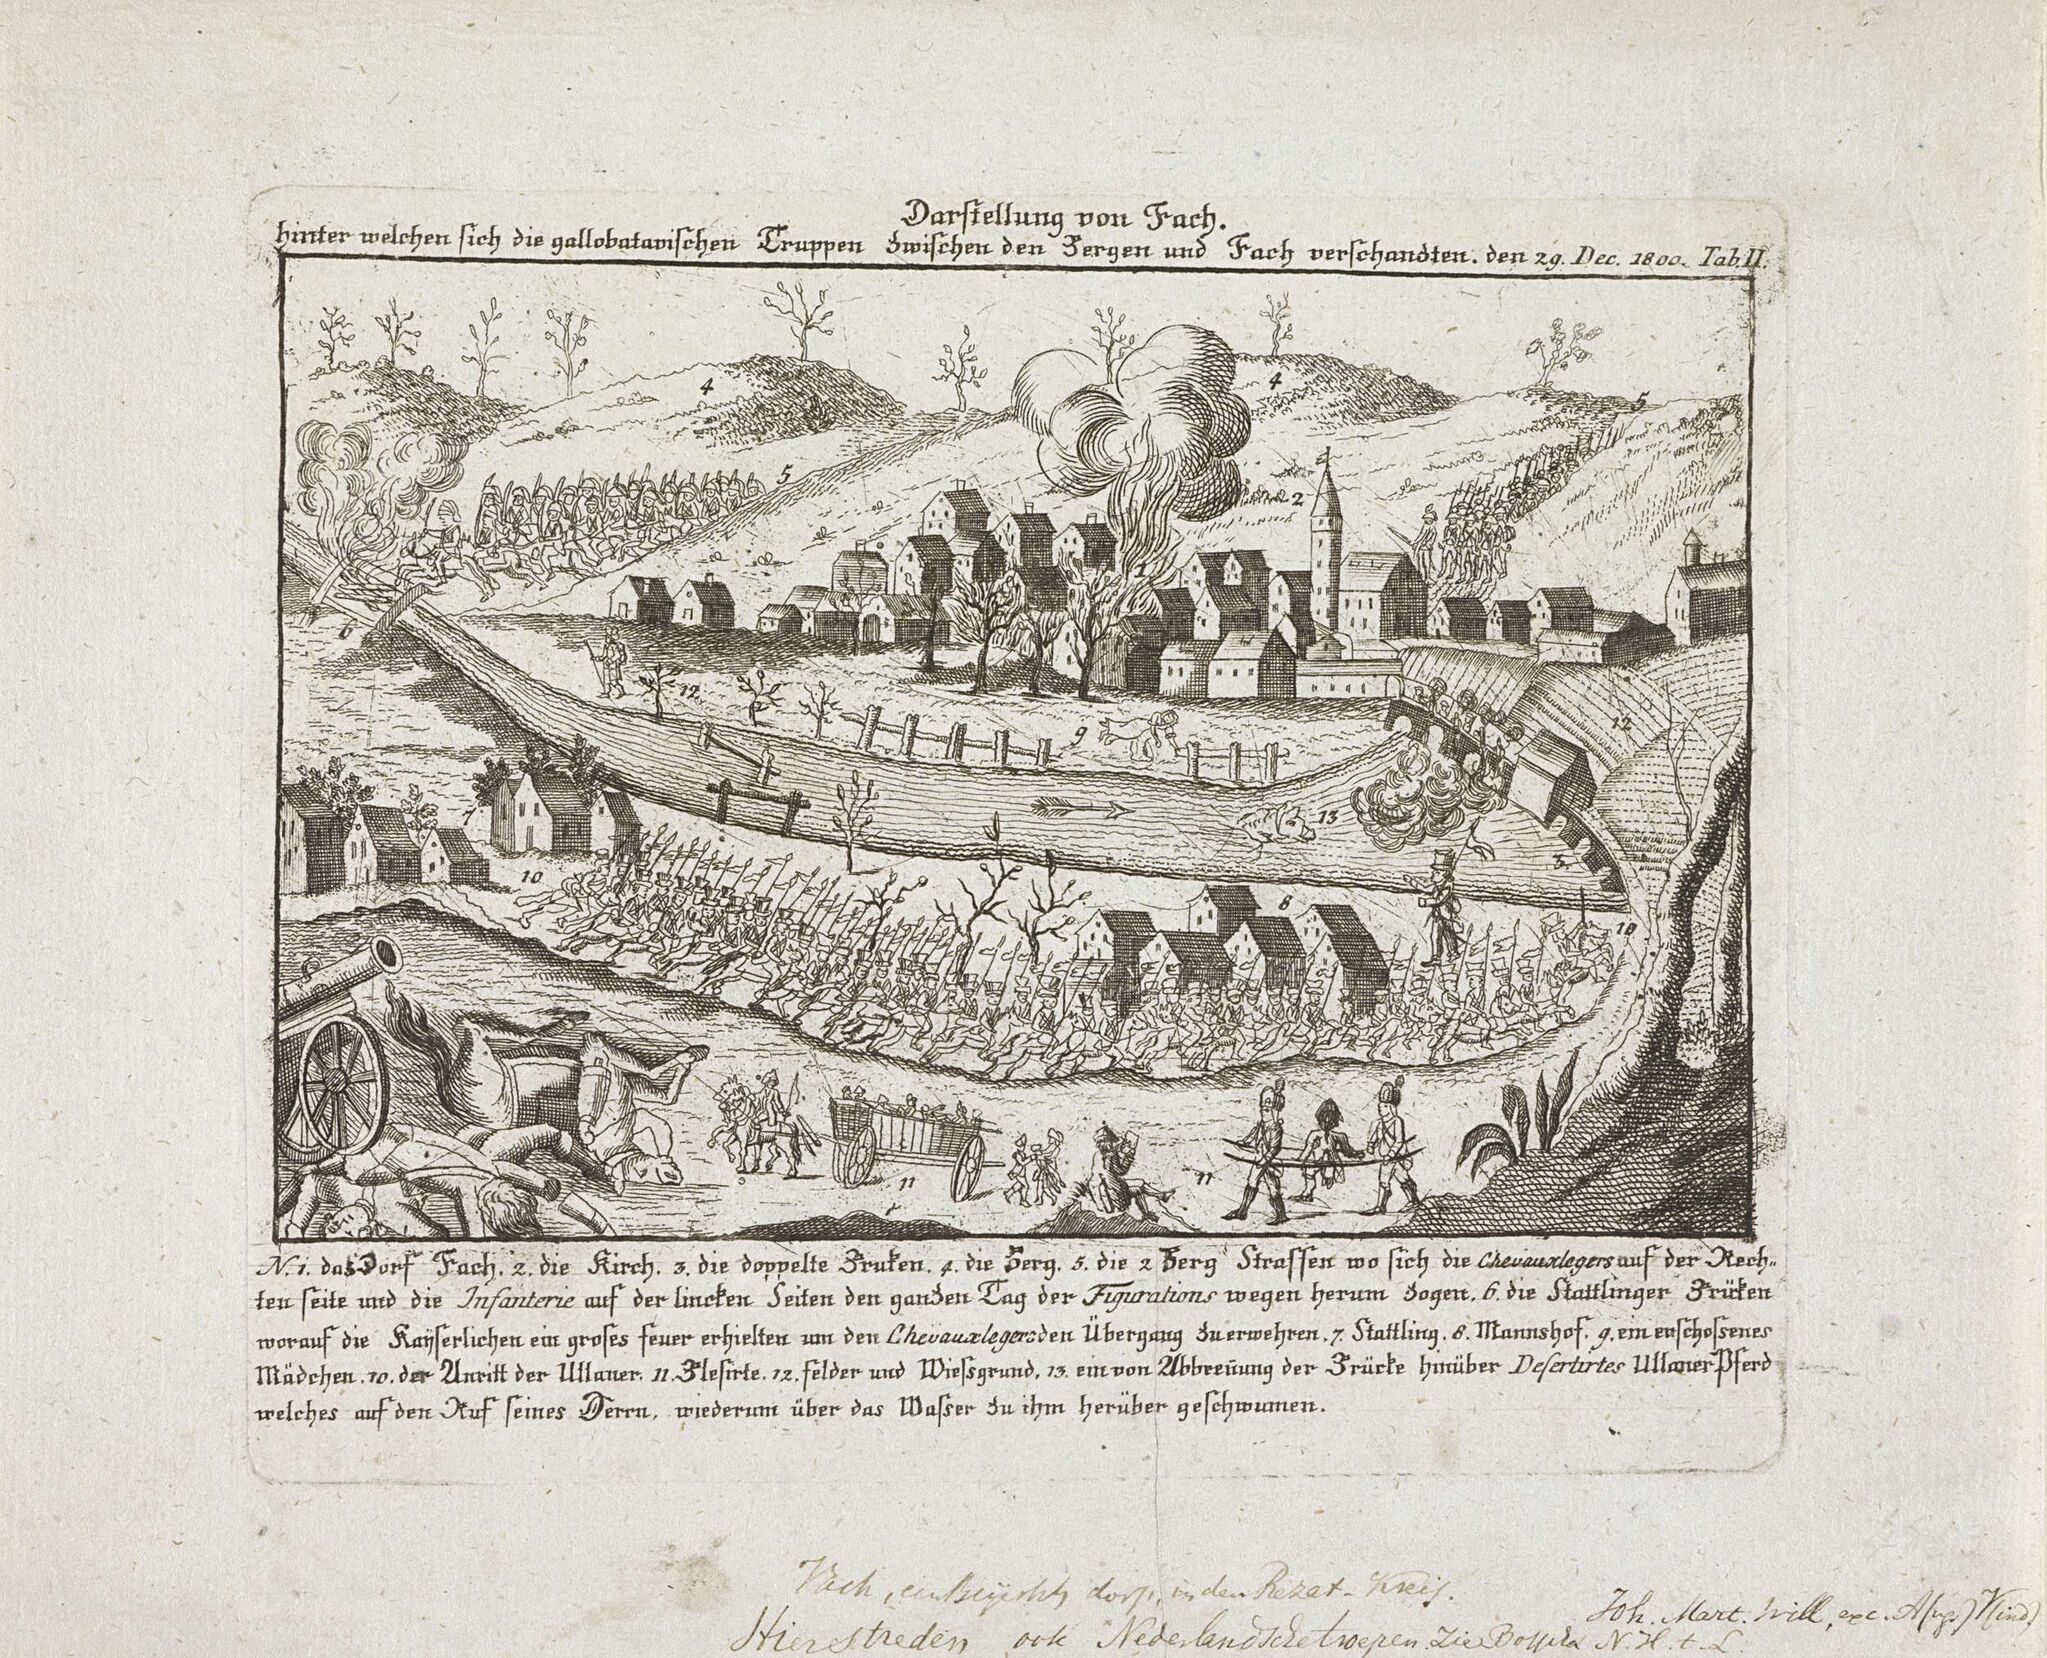 Darstellung von Fach.
hinter welchen sich die gallobatavischen Truppen zwischen den Bergen und Fach verschanzten. den 29. Dec. 1800. Tab. II.
4
4
5
5
2
1
6
12
9
12
7
13
3
10
8
10
11
11
N. 1. das Dorf Fach. 2. die Kirch. 3. die doppelte Bruken. 4. die Berg. 5. die 2 Berg Strassen wo sich die Chevauxlegers auf der Rech=
ten seite und die Infanterie auf der lincken Seiten den ganzen Tag der Figurations wegen herum zogen. 6. die Stattlinger Brüken
worauf die Kayserlichen ein groses feuer erhielten um den Chevauxlegers den Übergang zu erwehren. 7. Stattling. 8. Mannshof. 9. ein erschossenes
Mädchen. 10. der Anritt der Ullaner. 11. Blesirte. 12. felder und Wiessgrund. 13. ein von Abbreñung der Brücke hinüber Desertirtes Ullaner Pferd
welches auf den Ruf seines Herrn, wiederum über das Wasser zu ihm herüber geschwumen.
Vach, een dorp, in den Rezat-Kreis.
Joh. Mart. Will, exc. A(ug.) V(ind.)
Hier streden ook Nederlandsche troepen. Zie Bosscha N. H. t. L.